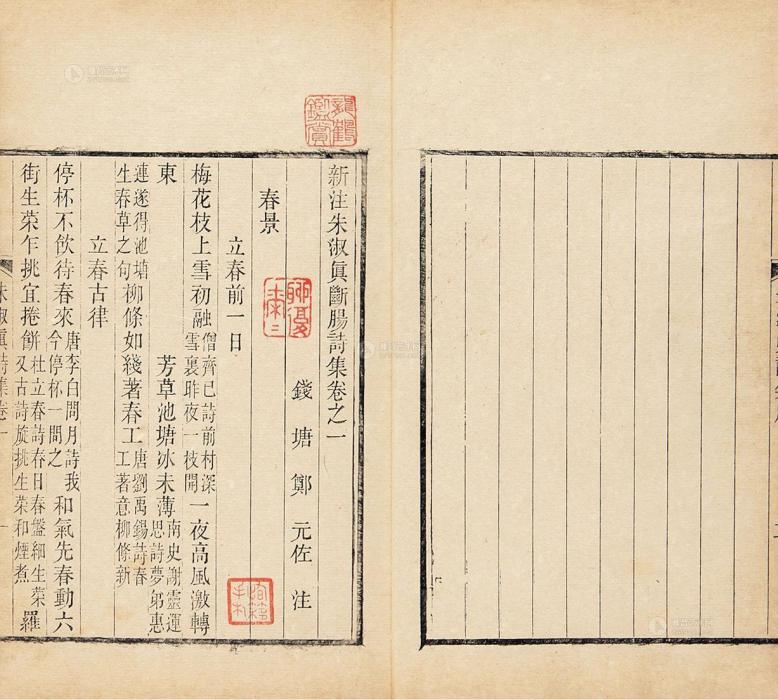 新注朱淑眞斷腸詩集卷之一
錢塘鄭元佐注
春景
立春前一日
梅花枝上雪初融僧齊已詩前村深雪裏昨夜一枝開一夜高風激轉
東芳草池塘冰未薄南史謝靈運思詩夢弟惠
連遂得池塘生春草之句柳條如綫著春工唐劉禹錫詩春工著意柳條新
立春古律
停杯不飲待春來唐李白問月詩我今停杯一問之和氣先春動六
街生菜乍挑宜捲餅杜立春詩春日春盤細生菜又古詩旋挑生菜和煙煮羅
朱淑眞詩集卷一
一